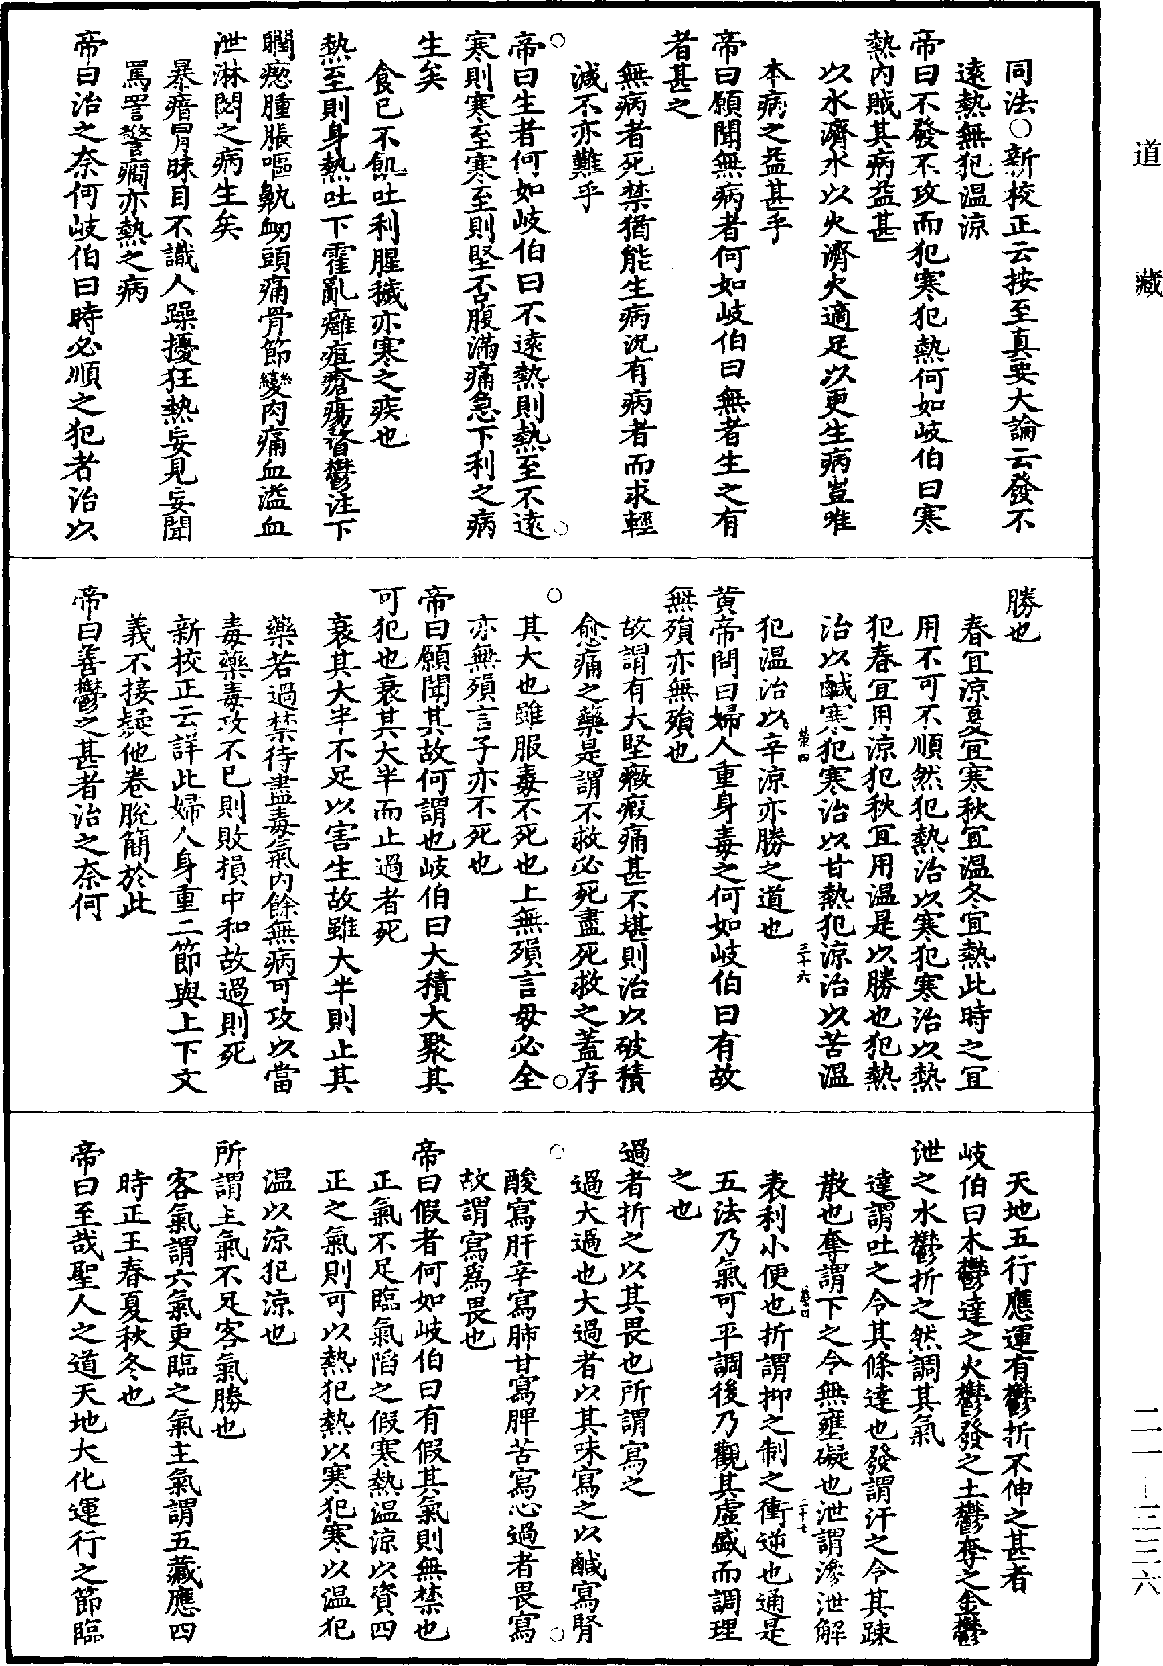 道藏
同法○新校正云按至真要大論云發不
遠熱無犯温涼
帝曰不發不攻而犯寒犯熱何如岐伯曰寒
熱內賊其病益甚
以水濟水以火濟火適足以更生病豈唯
本病之益甚乎
帝曰願聞無病者何如岐伯曰無者生之有
者甚之
無病者死禁猶能生病況有病者而求輕
減不亦難乎
帝曰生者何如岐伯曰不遠熱則熱至不遠
寒則寒至寒至則堅否腹滿痛急下利之病
生矣
食已不飢吐利腥穢亦寒之疾也
熱至則身熱吐下霍亂癰疽瘡瘍瞀鬱注下
瞤瘛腫脹嘔鼽衄頭痛骨節變肉痛血溢血
泄淋閟之病生矣
暴瘖冒昧目不識人躁擾狂熱妄見妄聞
罵詈驚癎亦熱之病
帝曰治之奈何岐伯曰時必順之犯者治以
勝也
春宜涼夏宜寒秋宜温冬宜熱此時之宜
用不可不順然犯熱治以寒犯寒治以熱
犯春宜用涼犯秋宜用温是以勝也犯熱
治以鹹寒犯寒治以甘熱犯涼治以苦温
犯温治以辛涼亦勝之道也
黄帝問曰婦人重身毒之何如岐伯曰有故
無殞亦無殞也
故謂有大堅癥瘕痛甚不堪則治以破積
愈痛之藥是謂不救必死盡死救之蓋存
其大也雖服毒不死也上無殞言母必全
亦無殞言子亦不死也
帝曰願聞其故何謂也岐伯曰大積大聚其
可犯也衰其大半而止過者死
衰其大半不足以害生故雖大半則止其
藥若過禁待盡毒氣內餘無病可攻以當
毒藥毒攻不已則敗損中和故過則死
新校正云詳此婦人身重二節與上下文
義不接疑他卷脫簡於此
帝曰善鬱之甚者治之奈何
天地五行應運有鬱折不伸之甚者
岐伯曰木鬱達之火鬱發之土鬱奪之金鬱
泄之水鬱折之然調其氣
達謂吐之令其條達也發謂汗之令其踈
散也奪謂下之令無壅礙也泄謂滲泄解
表利小便也折謂抑之制之衝逆也通是
五法乃氣可平調後乃觀其虚盛而調理
之也
過者折之以其畏也所謂寫之
過大過也大過者以其味寫之以鹹寫腎
酸寫肝辛寫肺甘寫脾苦寫心過者畏寫
故謂寫爲畏也
帝曰假者何如岐伯曰有假其氣則無禁也
正氣不足臨氣陷之假寒熱温涼以資四
正之氣則可以熱犯熱以寒犯寒以温犯
温以涼犯涼也
所謂主氣不足客氣勝也
客氣謂六氣更臨之氣主氣謂五藏應四
時正王春夏秋冬也
帝曰至哉聖人之道天地大化運行之節臨
二一－三三六